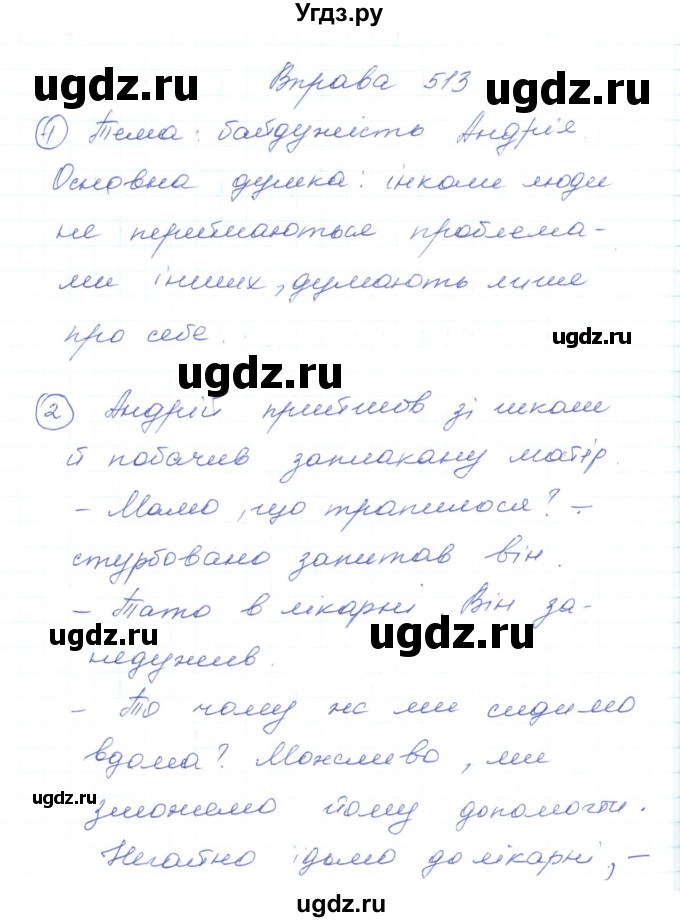 Угдз.ру
ugdz.ru
Вправа 513
ugdz.ru
1 Тема: байдужість Андрія.
Основна думка: інколи люди
не переймаються проблема-
ми інших, думають лише
про себе.
ugdz.ru
ugdz.ru
2 Андрій прийшов зі школи
й побачив заплакану матір.
- Мамо, що трапилося? -
стурбовано запитав він.
- Тато в лікарні. Він за-
ugdz.ru
ugdz.ru
недужив.
- То чому же ми сидимо
вдома? Можливо, ми
ugdz.ru
зможемо йому допомогти.
Негайно їдьмо до лікарні, -
ugdz.ru